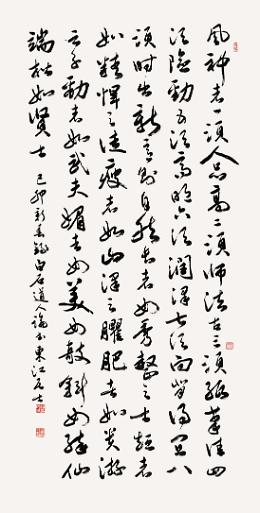 風神者一須人品高二須師法古三須紙筆佳四
須險勁五須高明六須潤澤七須向背得宜八
須時出新意則自然長者如秀整之士短者
如精悍之徒瘦者如山澤之臞肥者如貴游
之子勁者如武夫媚者如美女欹斜如醉仙
端楷如賢士 己卯新春錄白石道人論書東江居士